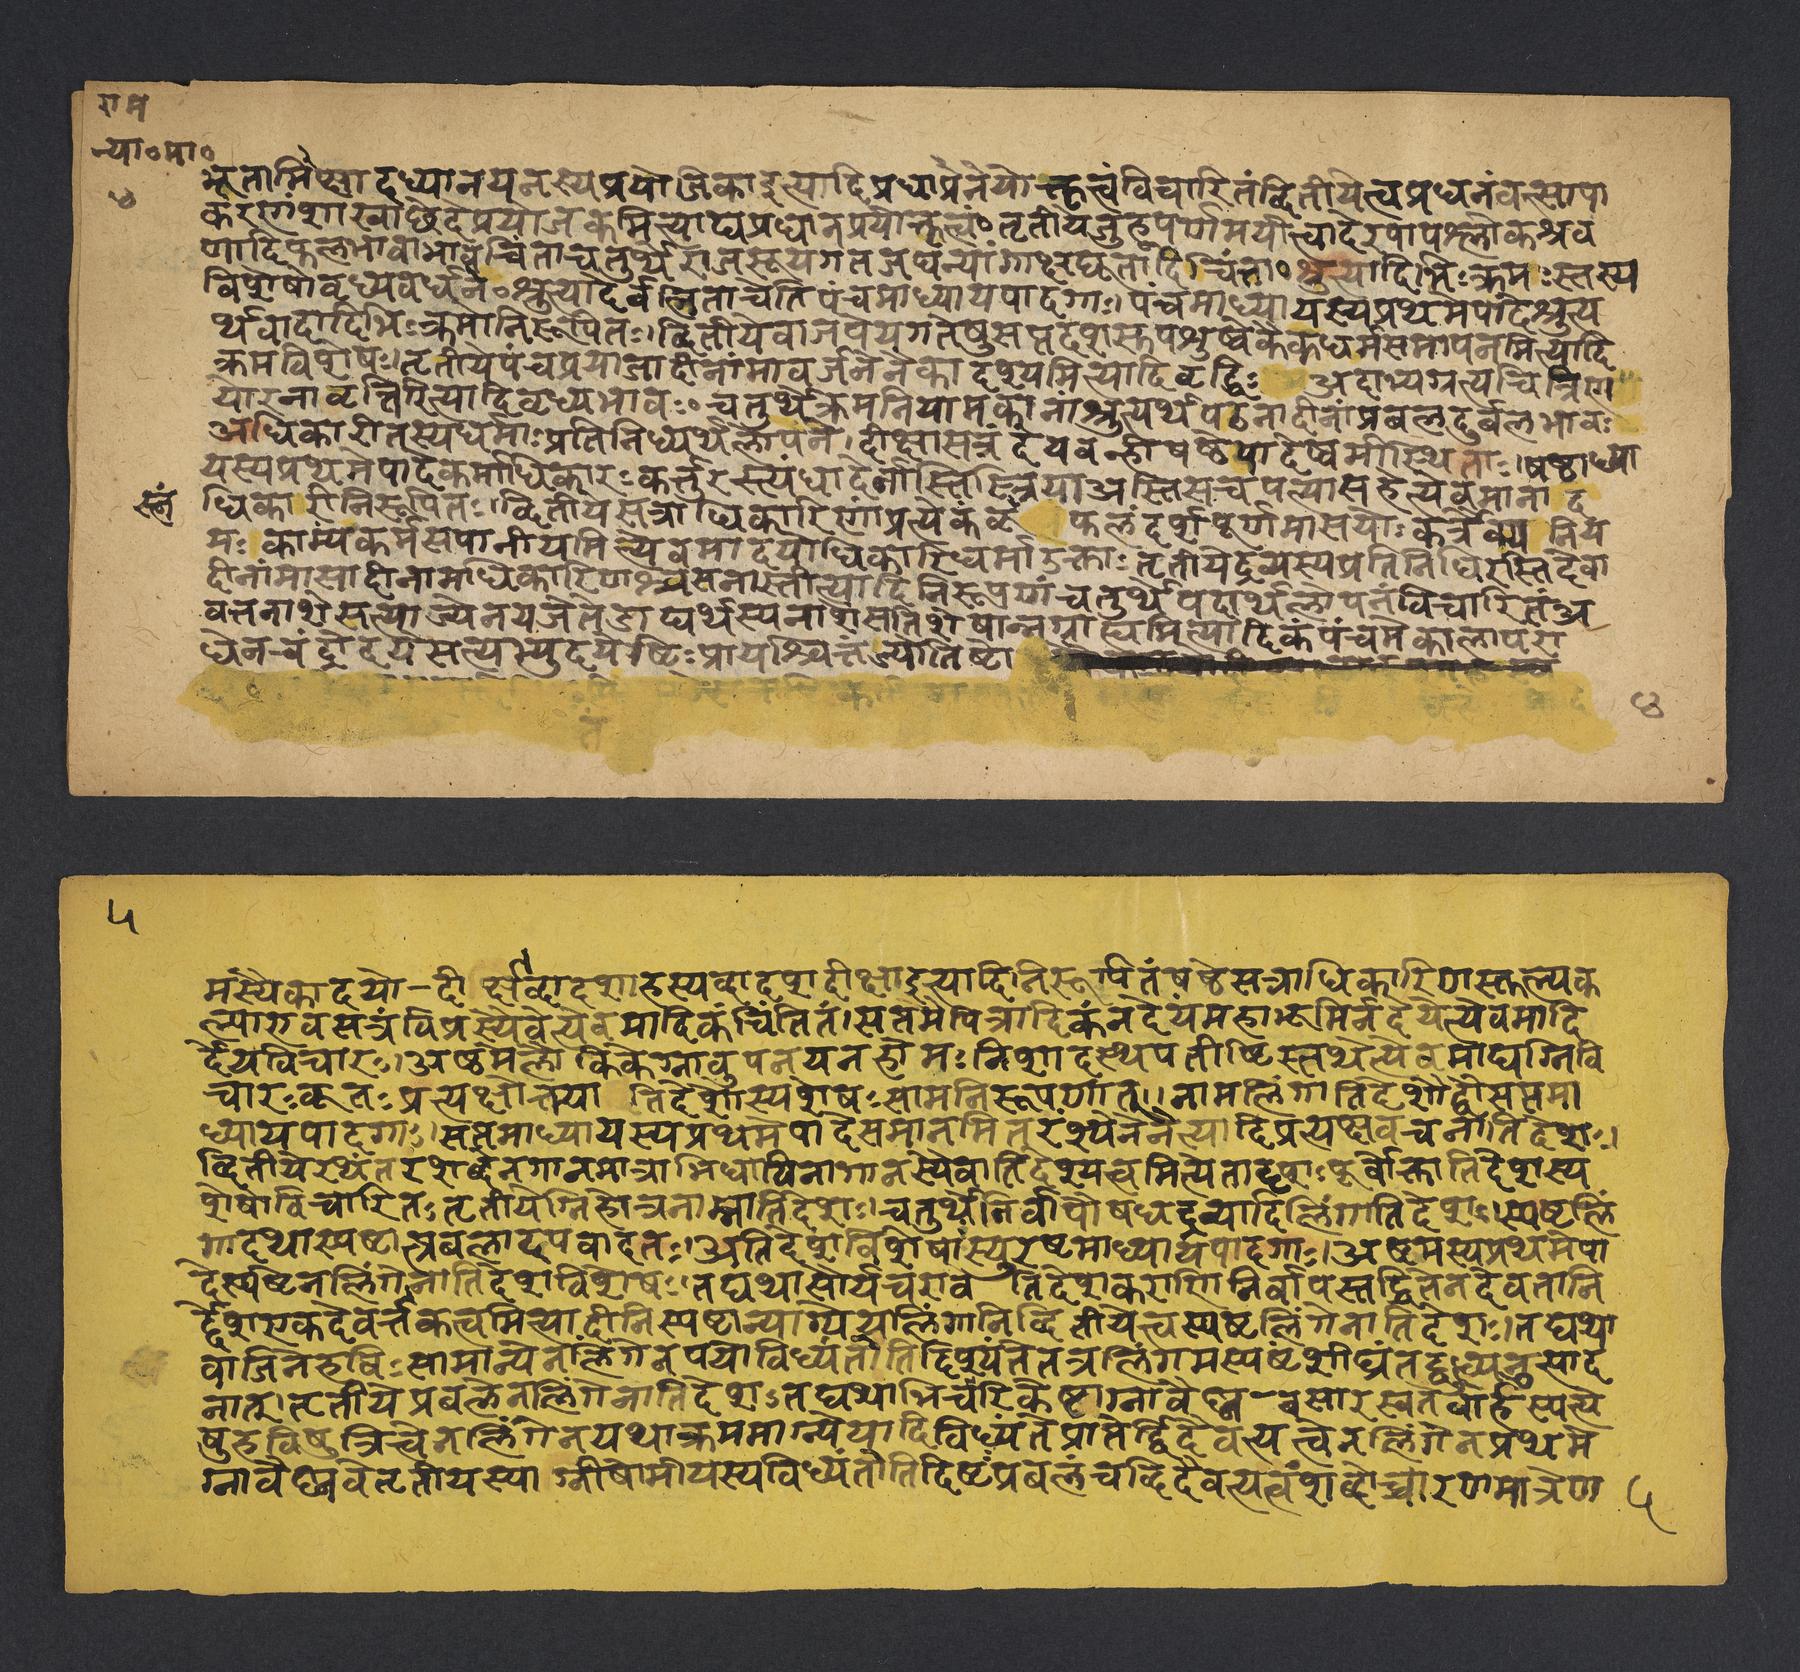 राम
न्या०मा०
४
भूतामिक्षादध्यानयनस्यप्रयोजिकाइत्यादिप्रधानप्रयोक्तृत्वंविचारितंद्वितीयेत्वप्रधनंवत्सापा
करणंशाखाछेदेप्रयोजकमित्याद्यप्रधानप्रयोक्तृत्वं०तृतीयेजुहूपर्णमयीत्वादेरपापश्लोकश्रव
णादिफलभावाभावचिंताचतुर्थेराजसूयगतजघन्यांगाक्षद्यूतादिचिंता०श्रुत्यादिभिःक्रमःस्तस्य
विशेषोवृध्यवर्धने०श्रुत्यादेर्बलिताचेतिपंचमाध्यायपादगाः।पंचमाध्यायस्यप्रथमेपादेश्रुत्य
र्थवादादिभिःक्रमोनिरूपितः।द्वितीयेवाजपेयगतेषुसप्तदशस्तपशुष्वेकैकधर्मसमापनमित्यादि
क्रमविशेषः।तृतीयेपंचप्रयाजादीनामावर्जनेनैकादश्यमित्यादिवृद्धिः अदाभ्यग्रत्यचित्रिण
योरनावृत्तिरित्यादिवृध्यभावः०चतुर्थेक्रमनियामकानांश्रुत्यर्थपठनादीनांप्रबलदुर्बलभावः
अधिकारीतस्यधर्माःप्रतिनिध्यर्थलोपने।दीक्षासत्रंदेयवन्हीषष्ठेपादेष्वमीस्थिताः।षष्ठाध्या
यस्यप्रथमेपादेकर्माधिकारःकर्त्तुरस्त्यंधादेर्नास्तिस्त्रियाअस्तिसचपत्यासहेत्येवमानाद
स्त्रं
धिकारीनिरूपितः।द्वितीयेसत्राधिकारिणांप्रत्येकंकृ फलंदर्शपूर्णमासयोःकर्त्रैक्यनिय
मःकाम्यंकर्मसपानीयमित्येवमादयोधिकारिधर्माउक्ताःतृतीयेद्रव्यस्यप्रतिनिधिरस्तिदेवा
दीनांमासादीनामधिकारिणश्चसनास्तीत्यादिनिरूपणंचतुर्थेपदार्थलोपनंविचारितंअ
वत्तनाशेसत्याज्येनयजेतेडाद्यर्थस्यनाशेसतिशेषान्नग्राह्यमित्यादिकंपंचमेकालापरा
धेनचंद्रोदयेसत्यभ्युदयेष्टिःप्रायश्चित्तंज्योतिष्टो
४
५
मस्यैकादयो-दीर्क्षाद्वादशाहस्यद्वादशदीक्षाइत्यादिनिरूपितंषष्ठेसत्राधिकारिणस्तल्यक
ल्पारुवसत्रंविप्रस्यैवेत्येवमादिकंचिंतितं।सप्तमेपित्रादिकंनदेयंमहाभूमिर्नदेयेत्येवमादि
र्देयविचारः।अष्ठमेलौकिकेग्नावुपनयनहोमःनिशादस्थपतीष्टिस्तथेत्येवमाद्यग्निवि
चारःकृतःप्रत्यक्षोक्तया तिदेशोस्यशेषःसामनिरूपणात्।।नामलिंगातिदेशौद्वौसप्तमा
ध्यायपादगाः।सप्तमाध्यायस्यप्रथमेपादेसमानमितरंश्येनेनेत्यादिप्रत्यक्षवचनातिदेशः।
द्वितीयेरथंतरशब्देनगानमात्राभिधायिनागानस्यैवातिदेश्यत्वमित्येतादृशःपूर्वोक्तातिदेशस्य
शेषोविचारितःतृतीयेग्निहोत्रनाम्नातिदेशः।चतुर्थेनिर्वापौषधद्रव्यादिलिंगातिदेशः।स्पष्टलिं
गादथास्पष्टात्प्रबलादपवादतः।अतिदेशविशेषांस्युरष्टमाध्यायेपादगाः।अष्टमस्यप्रथमेपा
देस्पष्टेनलिंगेनातिदेशविशेषः।तद्यथासौर्येचरावतिदेशकराणिनिर्वापस्तद्धितेनदेवतानि
र्द्देशएकदेवर्त्तकत्वमित्यादीनिस्पष्टान्याग्नेयलिंगानिद्वितीयेत्वस्पष्टलिंगेनातिदेशः।तद्यथा
वाजिनेहविःसामान्येनलिंगेनपयोविध्यंतोतिदिश्यंतेतत्रलिंगमस्पष्टंशीघ्रंतद्बुध्यनुसाद
नात्।तृतीयेप्रबलेनलिंगेनातिदेशःतद्यथाभिचरिकेष्टाग्नावैष्णवसारस्वतबार्हस्पत्ये
षुहविष्षुत्रित्वेनलिंगेनयथाक्रममाग्नेयादिविध्यंतेप्राप्तेर्द्विदेवत्यत्वेनलिंगेनप्रथमे
ग्नावैष्णवेतृतीयस्याग्नीषोमीयस्यविध्यंतोतिदिष्टंप्रबलंचद्विदेवत्यत्वंशब्दोच्चारणमात्रेण
५